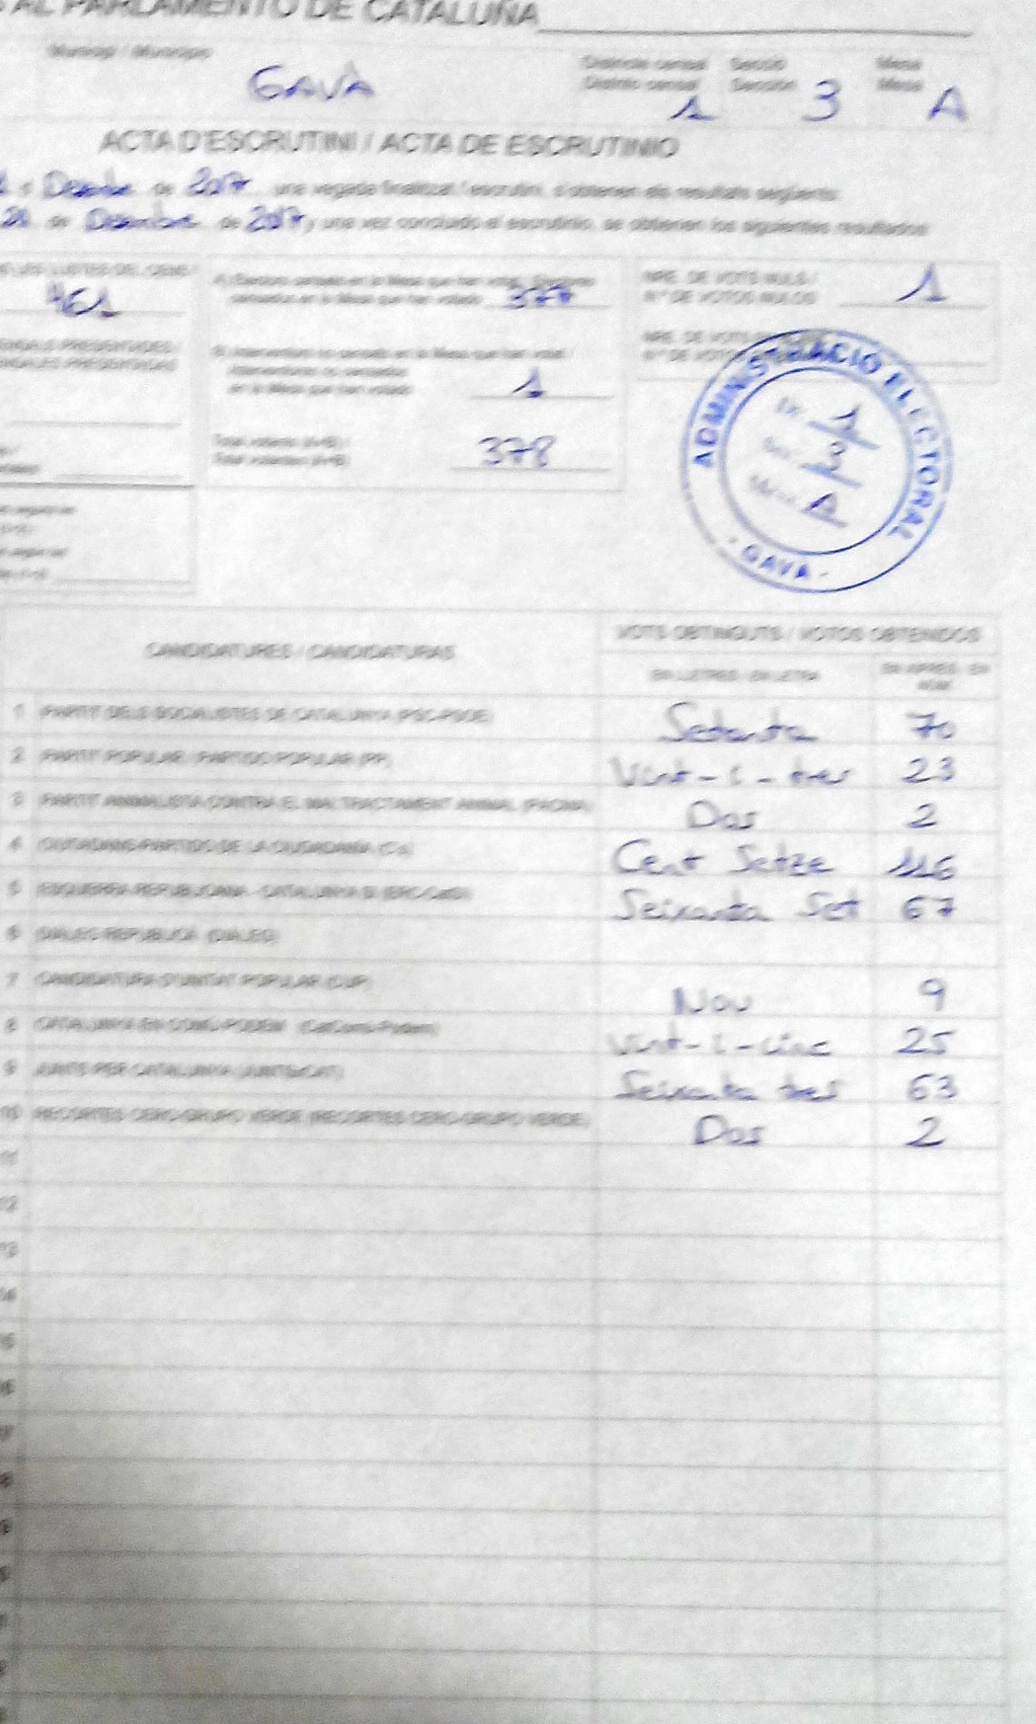 AL PARLAMENTO DE CATALUÑA
Municipi / Municipio
GAVÀ
Districte censal
Distrito censal
1
Secció
Sección
3
Mesa
Mesa
A
ACTA D'ESCRUTINI / ACTA DE ESCRUTINIO
Desembre de 2017, una vegada finalitzat l'escrutini, s'obtenen els resultats següents:
21 de Desembre de 2017 y una vez concluido el escrutinio, se obtienen los siguientes resultados:
461
censados en la Mesa que han votado 377
NRE. DE VOTS NULS /
Nº DE VOTOS NULOS 1
NRE. DE VOTS
Nº DE VOTOS
Interventores no censados
en la Mesa que han votado 1
Total votants (A+B) /
Total votantes (A+B) 378
ADMINISTRACIÓ ELECTORAL
1
3
A
- GAVA -
CANDIDATURES / CANDIDATURAS
VOTS OBTINGUTS / VOTOS OBTENIDOS
EN LLETRES - EN LETRA
1 PARTIT DELS SOCIALISTES DE CATALUNYA (PSC-PSOE) Setanta 70
2 PARTIT POPULAR / PARTIDO POPULAR (PP) Vint-i-tres 23
3 PARTIT ANIMALISTA CONTRA EL MALTRACTAMENT ANIMAL (PACMA) Dos 2
4 CIUTADANS-PARTIDO DE LA CIUDADANÍA (Cs) Cent Setze 116
5 ESQUERRA REPUBLICANA - CATALUNYA SÍ (ERC-CatSí) Seixanta Set 67
6 DIÀLEG REPÚBLICA (DIÀLEG)
7 CANDIDATURA D'UNITAT POPULAR (CUP) Nou 9
8 CATALUNYA EN COMÚ-PODEM (CatComú-Podem) Vint-i-cinc 25
9 JUNTS PER CATALUNYA (JUNTSxCAT) Seixanta tres 63
10 RECORTES CERO-GRUPO VERDE (RECORTES CERO-GRUPO VERDE) Dos 2
11
12
13